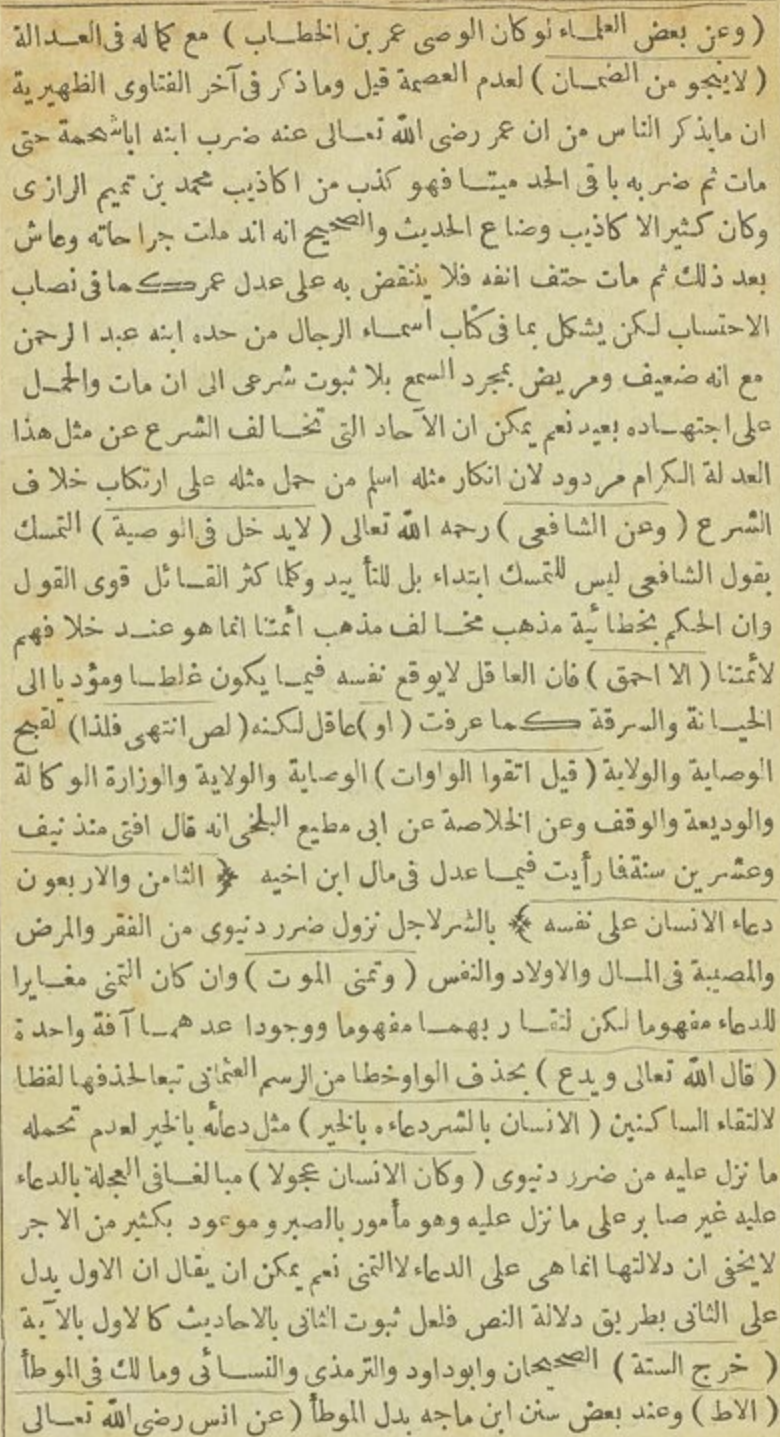 ( وعن بعض العلماء لو كان الوصى عمر بن الخطاب ) مع كماله فى العدالة
( لا ينجو من الضمان ) لعدم العصمة قيل وما ذكر فى آخر الفتاوى الظهيرية
ان ما يذكر الناس من ان عمر رضى الله تعالى عنه ضرب ابنه اباشحمة حتى
مات ثم ضربه باقى الحد ميتا فهو كذب من اكاذيب محمد بن تميم الرازى
وكان كثير الاكاذيب وضاع الحديث والصحيح انه اندملت جراحاته وعاش
بعد ذلك ثم مات حتف انفه فلا ينتقض به على عدل عمر كما فى نصاب
الاحتساب لكن يشكل بما فى كتاب اسماء الرجال من حده ابنه عبد الرحمن
مع انه ضعيف ومريض بمجرد السمع بلا ثبوت شرعى الى ان مات والحمل
على اجتهاده بعيد نعم يمكن ان الآحاد التى تخالف الشرع عن مثل هذا
العدلة الكرام مردود لان انكار مثله اسلم من حمل مثله على ارتكاب خلاف
الشرع ( وعن الشافعى ) رحمه الله تعالى ( لا يدخل فى الوصية ) التمسك
بقول الشافعى ليس للتمسك ابتداء بل للتأييد وكلما كثر القائل قوى القول
وان الحكم بخطائية مذهب مخالف مذهب أئمتنا انما هو عند خلافهم
لأئمتنا ( الا احمق ) فان العاقل لا يوقع نفسه فيما يكون غلطا ومؤديا الى
الخيانة والسرقة كما عرفت ( او ) عاقل لكنه ( لص انتهى فلذا ) لقبح
الوصاية والولاية ( قيل اتقوا الواوات ) الوصاية والولاية والوزارة الوكالة
والوديعة والوقف وعن الخلاصة عن ابى مطيع البلخى انه قال افتى منذ نيف
وعشرين سنة فما رأيت فيما عدل فى مال ابن اخيه ﴿ الثامن والاربعون
دعاء الانسان على نفسه ﴾ بالشر لاجل نزول ضرر دنيوى من الفقر والمرض
والمصيبة فى المال والاولاد والنفس ( وتمنى الموت ) وان كان التمنى مغايرا
للدعاء مفهوما لكن لتقاربهما مفهوما ووجودا عدهما آفة واحدة
( قال الله تعالى ويدع ) بحذف الواو خطا من الرسم العثمانى تبعا لحذفها لفظا
لالتقاء الساكنين ( الانسان بالشر دعاءه بالخير ) مثل دعائه بالخير لعدم تحمله
ما نزل عليه من ضرر دنيوى ( وكان الانسان عجولا ) مبالغا فى العجلة بالدعاء
عليه غير صابر على ما نزل عليه وهو مأمور بالصبر وموعود بكثير من الاجر
لا يخفى ان دلالتها انما هى على الدعاء لا التمنى نعم يمكن ان يقال ان الاول يدل
على الثانى بطريق دلالة النص فلعل ثبوت الثانى بالاحاديث كالاول بالآية
( خرج الستة ) الصحيحان وابوداود والترمذى والنسائى ومالك فى الموطأ
( الاط ) وعند بعض سنن ابن ماجه بدل الموطأ ( عن انس رضى الله تعالى